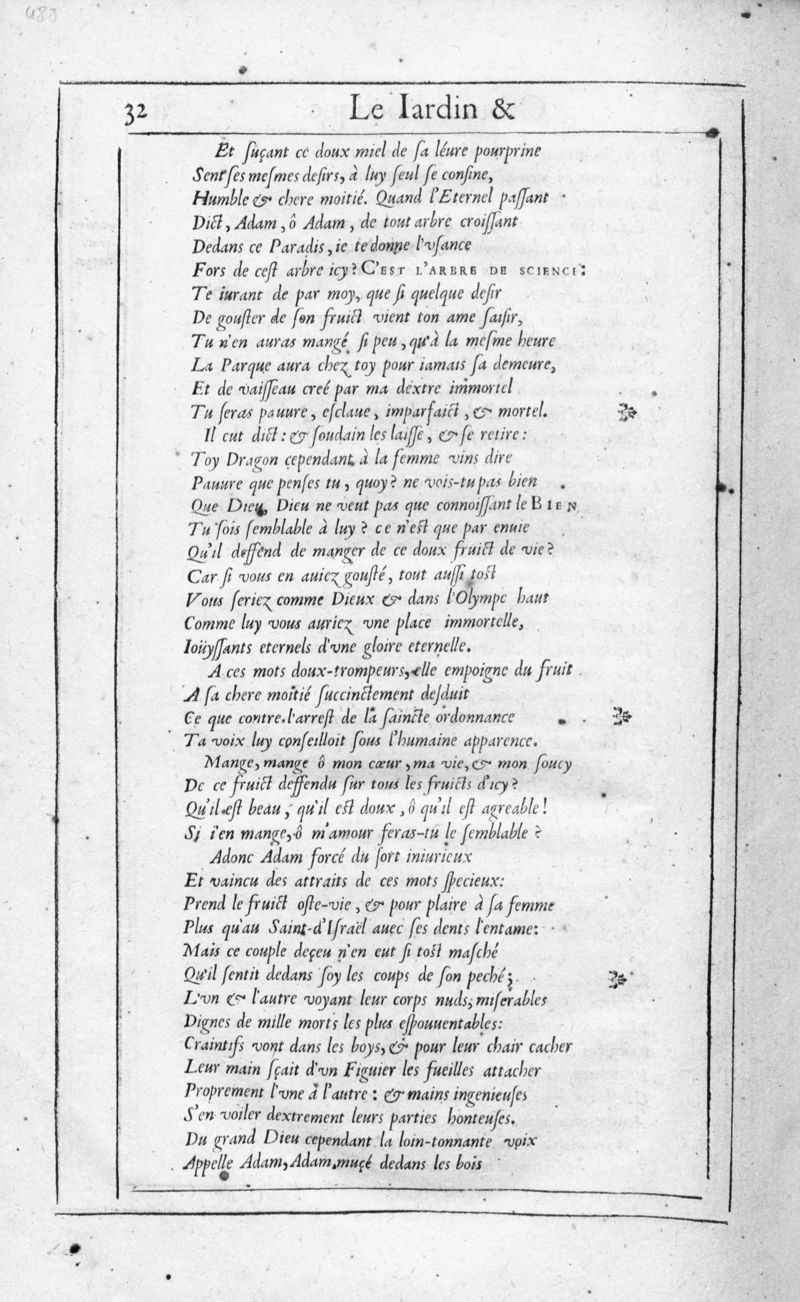 483
32 Le Iardin &
Et ſuçant ce doux miel de ſa léure pourprine
Sent ſes meſmes deſirs, à luy ſeul ſe confine,
Humble & chere moitié. Quand l'Eternel paſſant
Dict, Adam, ô Adam, de tout arbre croiſſant
Dedans ce Paradis, ie te donne l'vſance
Fors de ceſt arbre icy? C'EST L'ARBRE DE SCIENCE:
Te iurant de par moy, que ſi quelque deſir
De gouſter de ſon fruict vient ton ame ſaiſir,
Tu n'en auras mangé ſi peu, qu'à la meſme heure
La Parque aura chez toy pour iamais ſa demeure,
Et de vaiſſeau creé par ma dextre immortel
Tu ſeras pauure, eſclaue, imparfaict, & mortel.
Il eut dict: & ſoudain les laiſſe, & ſe retire:
Toy Dragon cependant à la femme vins dire
Pauure que penſes tu, quoy? ne vois-tu pas bien
Que Dieu, Dieu ne veut pas que connoiſſant le BIEN
Tu ſois ſemblable à luy? ce n'eſt que par enuie
Qu'il deffend de manger de ce doux fruict de vie?
Car ſi vous en auiez gouſté, tout auſſi toſt
Vous ſeriez comme Dieux & dans l'Olympe haut
Comme luy vous auriez vne place immortelle,
Ioüyſſants eternels d'vne gloire eternelle.
A ces mots doux-trompeurs, elle empoigne du fruit
A ſa chere moitié ſuccinctement deſduit
Ce que contre l'arreſt de la ſaincte ordonnance
Ta voix luy conſeilloit ſous l'humaine apparence.
Mange, mange ô mon cœur, ma vie, & mon ſoucy
De ce fruict deffendu ſur tous les fruicts d'icy?
Qu'il eſt beau, qu'il eſt doux, ô qu'il eſt agreable!
Si i'en mange, ô m'amour feras-tu le ſemblable?
Adonc Adam forcé du ſort iniurieux
Et vaincu des attraits de ces mots ſpecieux:
Prend le fruict oſte-vie, & pour plaire à ſa femme
Plus qu'au Saint-d'Iſraël auec ſes dents l'entame:
Mais ce couple deçeu n'en eut ſi toſt maſché
Qu'il ſentit dedans ſoy les coups de ſon peché;
L'vn & l'autre voyant leur corps nuds, miſerables
Dignes de mille morts les plus eſpouuentables:
Craintifs vont dans les boys, & pour leur chair cacher
Leur main ſçait d'vn Figuier les fueilles attacher
Proprement l'vne à l'autre: & mains ingenieuſes
S'en voiler dextrement leurs parties honteuſes.
Du grand Dieu cependant la loin-tonnante voix
Appelle Adam, Adam muçé dedans les bois